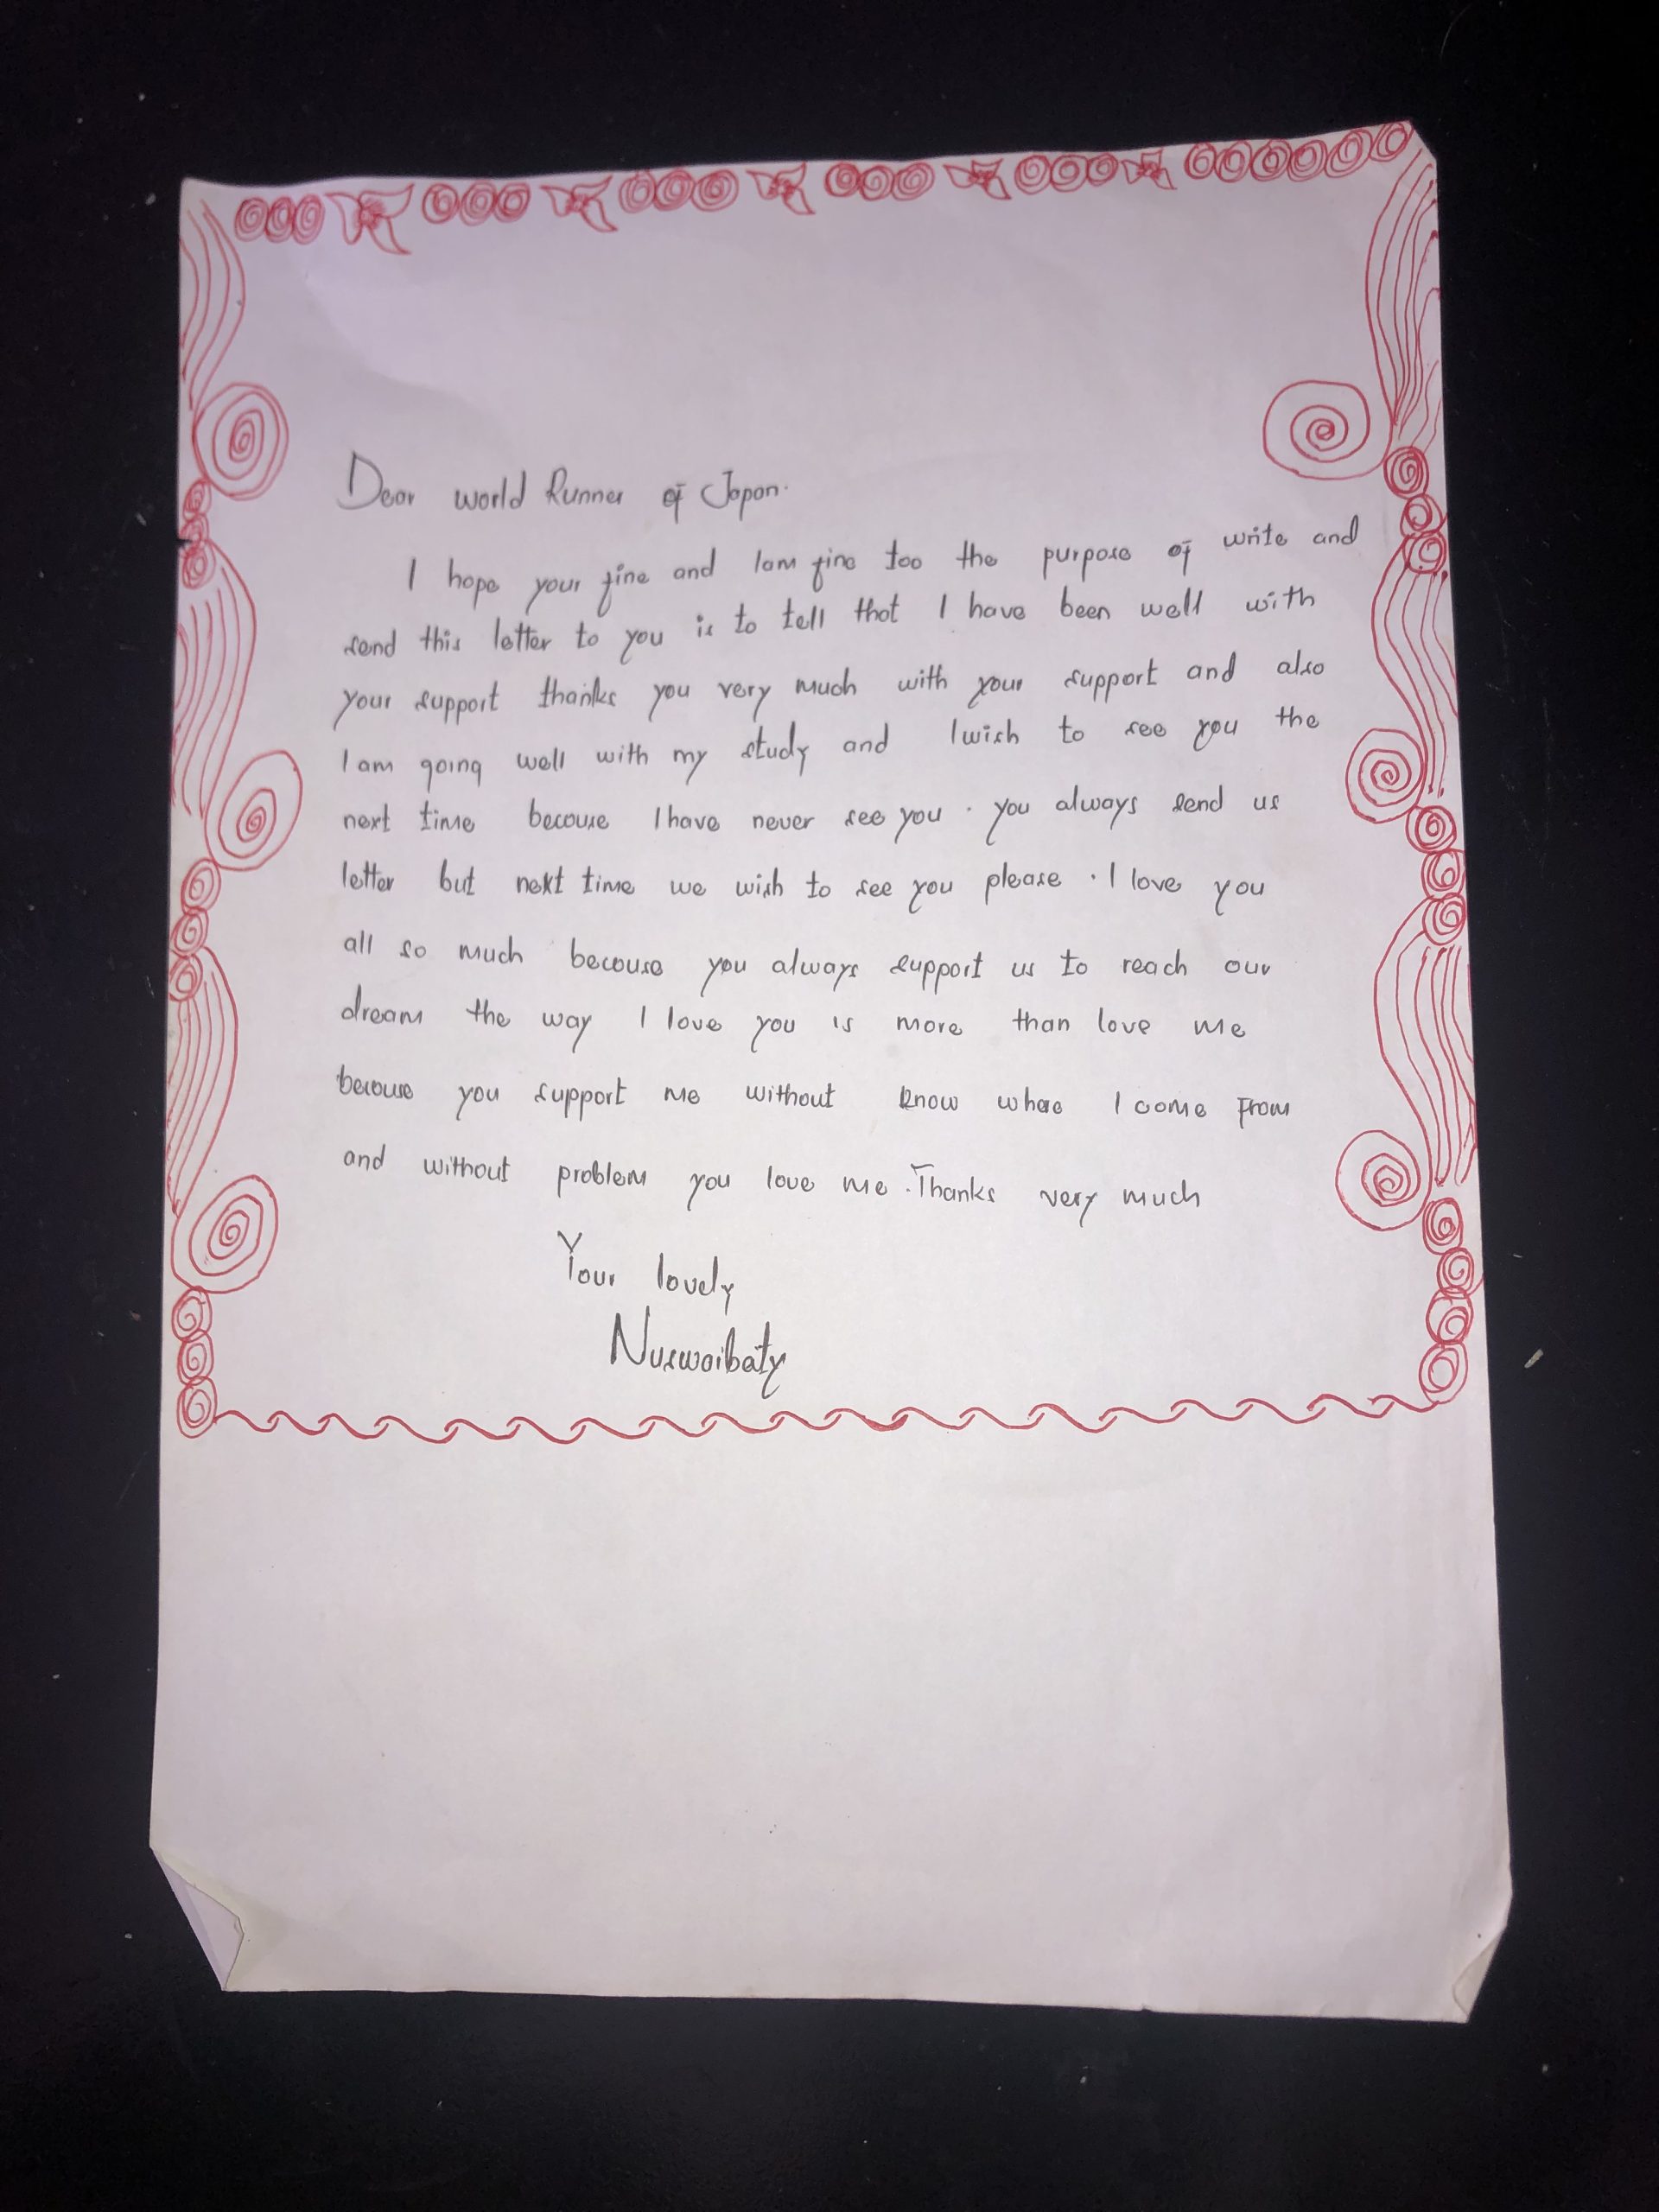 Dear world Runner of Japan.
I hope your fine and Iam fine too the purpose of write and
send this letter to you is to tell that I have been well with
your support thanks you very much with your support and also
I am going well with my study and I wish to see you the
next time because I have never see you . you always send us
letter but next time we wish to see you please . I love you
all so much because you always support us to reach our
dream the way I love you is more than love me
because you support me without know where I come From
and without problem you love me . Thanks very much
Your lovely
Nuswaibaty